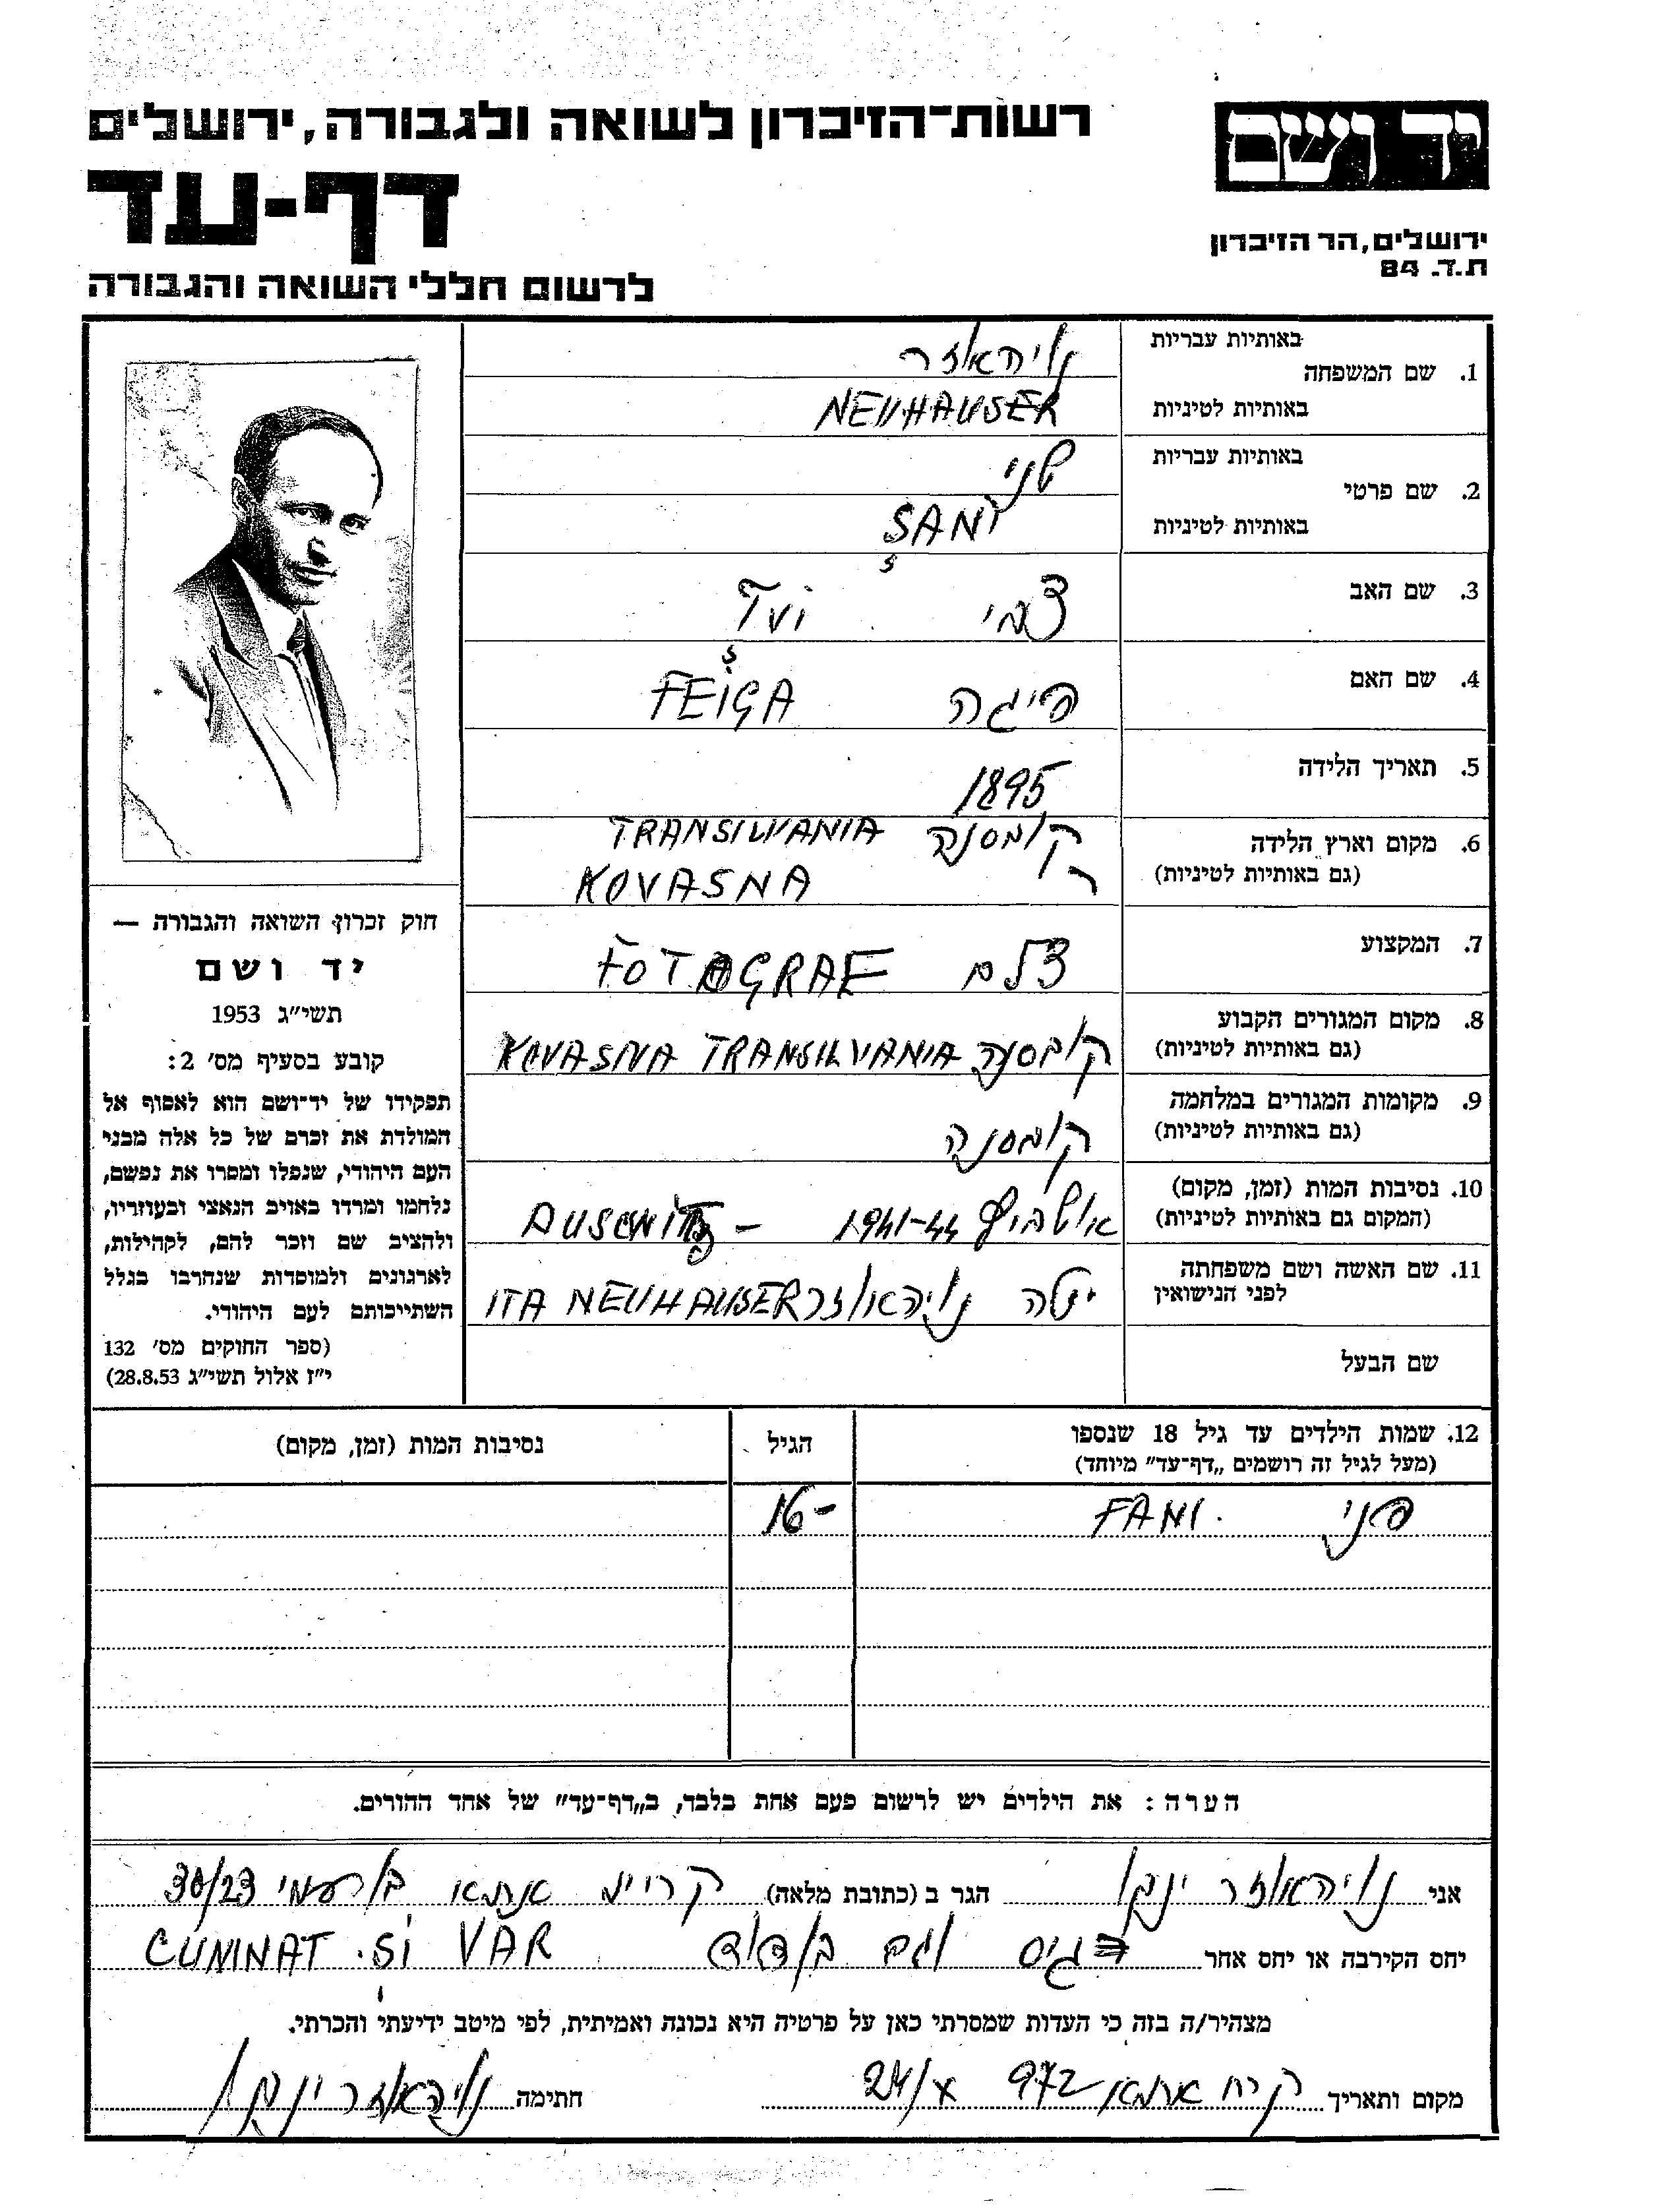 רשות־הזיכרון לשואה ולגבורה, ירושלים
יד ושם
דף-עד
ירושלים, הר הזיכרון
ת.ד. 84
לרשום חללי השואה והגבורה
באותיות עבריות
1. שם המשפחה
נויהאוזר
באותיות לטיניות
NEUHAUSER
באותיות עבריות
2. שם פרטי
שני
באותיות לטיניות
ŞANI
3. שם האב
צבי Tvi
4. שם האם
פיגה FEIGA
5. תאריך הלידה
1895
6. מקום וארץ הלידה
(גם באותיות לטיניות)
קובסנה TRANSILVANIA
KOVASNA
7. המקצוע
צלם FOTOGRAF
8. מקום המגורים הקבוע
(גם באותיות לטיניות)
קובסנה KOVASNA TRANSILVANIA
9. מקומות המגורים במלחמה
(גם באותיות לטיניות)
קובסנה
10. נסיבות המות (זמן, מקום)
(המקום גם באותיות לטיניות)
אושביץ 1941-44 –
11. שם האשה ושם משפחתה
לפני הנישואין
יטה נויהאוזר ITA NEUHAUSER
שם הבעל
חוק זכרון השואה והגבורה —
יד ושם
תשי״ג 1953
קובע בסעיף מס׳ 2:
תפקידו של יד־ושם הוא לאסוף אל
המולדת את זכרם של כל אלה מבני
העם היהודי, שנפלו ומסרו את נפשם,
נלחמו ומרדו באויב הנאצי ובעוזריו,
ולהציב שם וזכר להם, לקהילות,
לארגונים ולמוסדות שנחרבו בגלל
השתייכותם לעם היהודי.
(ספר החוקים מס׳ 132
י״ז אלול תשי״ג 28.8.53)
12. שמות הילדים עד גיל 18 שנספו
(מעל לגיל זה רושמים „דף־עד״ מיוחד)
הגיל
נסיבות המות (זמן, מקום)
פני FANI 16-
הערה: את הילדים יש לרשום פעם אחת בלבד, ב„דף־עד״ של אחד ההורים.
אני נויהאוזר הגר ב (כתובת מלאה) 30/23
יחס הקירבה או יחס אחר גיס וגם בן דוד CUMNAT ŞI VĂR
מצהיר/ה בזה כי העדות שמסרתי כאן על פרטיה היא נכונה ואמיתית, לפי מיטב ידיעתי והכרתי.
מקום ותאריך 972 24/X חתימה נויהאוזר